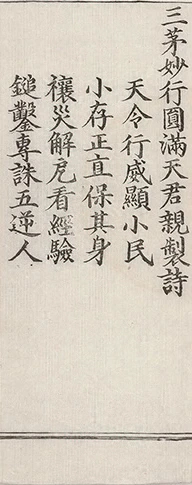 三茅妙行圓滿天君親製詩
天令行威顯小民
小存正直保其身
禳災解厄看經驗
鎚鑿專誅五逆人